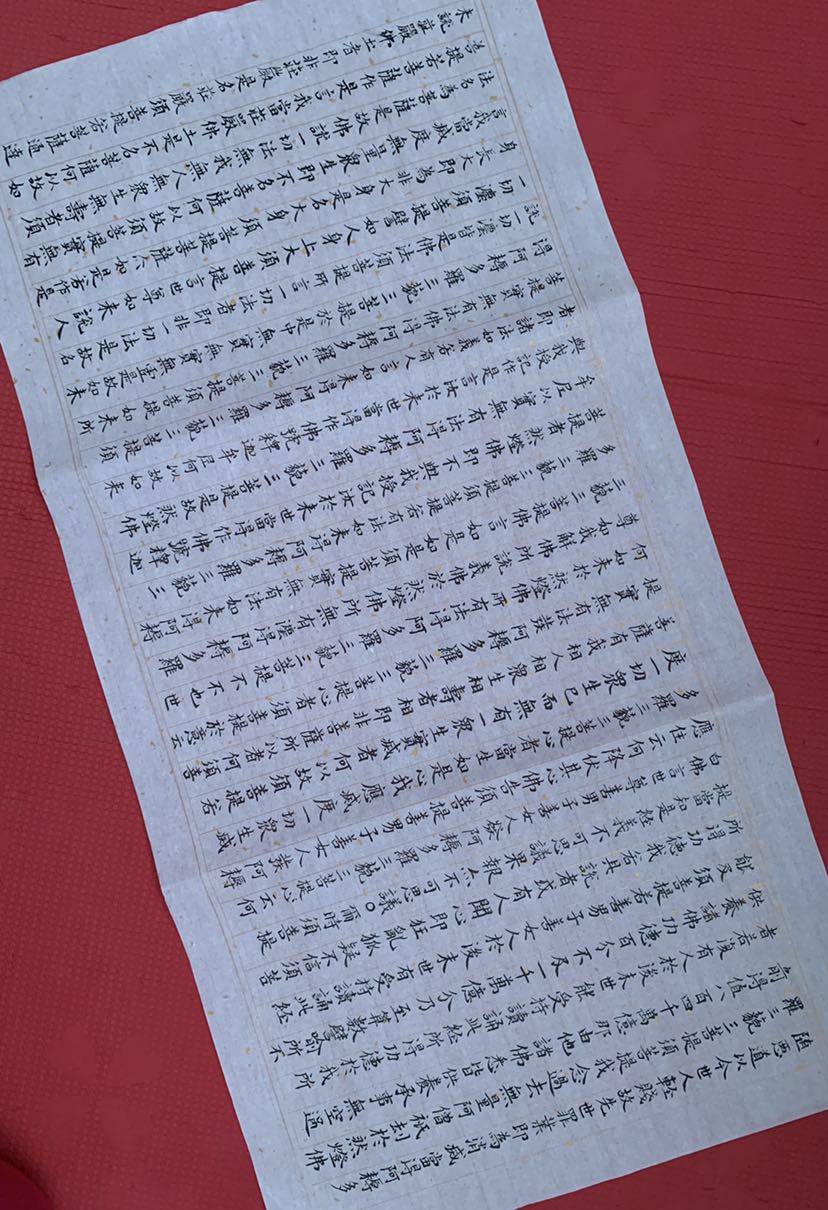 墮惡道以今世人輕賤故先世罪業即為消滅當得阿耨多
羅三貌三菩提須菩提我念過去無量阿僧祇劫於然燈佛
前得值八百四千萬億那由他諸佛悉皆供養承事無空過
者若復有人於後末世能受持讀誦此經所得功德於我所
供養諸佛功德百分不及一千萬億分乃至算數譬喻所不
能及須菩提若善男子善女人於後末世有受持讀誦此經
所得功德我若具說者或有人聞心即狂亂狐疑不信須菩
提當知是經義不可思議果報亦不可思議○爾時須菩提
白佛言世尊善男子善女人發阿耨多羅三貌三菩提心云何
應住云何降伏其心佛告須菩提善男子善女人發阿耨
多羅三貌三菩提心者當生如是心我應滅度一切眾生滅
度一切眾生已而無有一眾生實滅者何以故須菩提若
菩薩有我相人相眾生相壽者相即非菩薩所以者何須菩
提實無有法發阿耨多羅三貌三菩提心者須菩提於意云
何如来於然燈佛所有法得阿耨多羅三貌三菩提不不也世
尊如我解佛所說義佛於然燈佛所無有法得阿耨多羅
三貌三菩提佛言如是如是須菩提實無有法如来得阿耨
多羅三貌三菩提須菩提若有法如来得阿耨多羅三貌三
菩提者然燈佛即不與我授記汝於来世當得作佛號釋迦
牟尼以實無有法得阿耨多羅三貌三菩提是故然燈佛
與我授記作是言汝於来世當得作佛號釋迦牟尼何以故如来
者即諸法如義若有人言如来得阿耨多羅三貌三菩提須
菩提實無有法佛得阿耨多羅三貌三菩提須菩提如来所
得阿耨多羅三貌三菩提於是中無實無虛是故如来
說一切法皆是佛法須菩提所言一切法者即非一切法是故名
一切法須菩提譬如人身上大須菩提言世尊如来說人
身長大即為非大身是名大身須菩提菩薩亦如是若作是
言我當滅度無量眾生即不名菩薩何以故須菩提實無有
法名為菩薩是故佛說一切法無我無人無眾生無壽者須
菩提若菩薩作是言我當莊嚴佛土是不名菩薩何以故如
来說莊嚴佛土者即非莊嚴是名莊嚴須菩提若菩薩通達